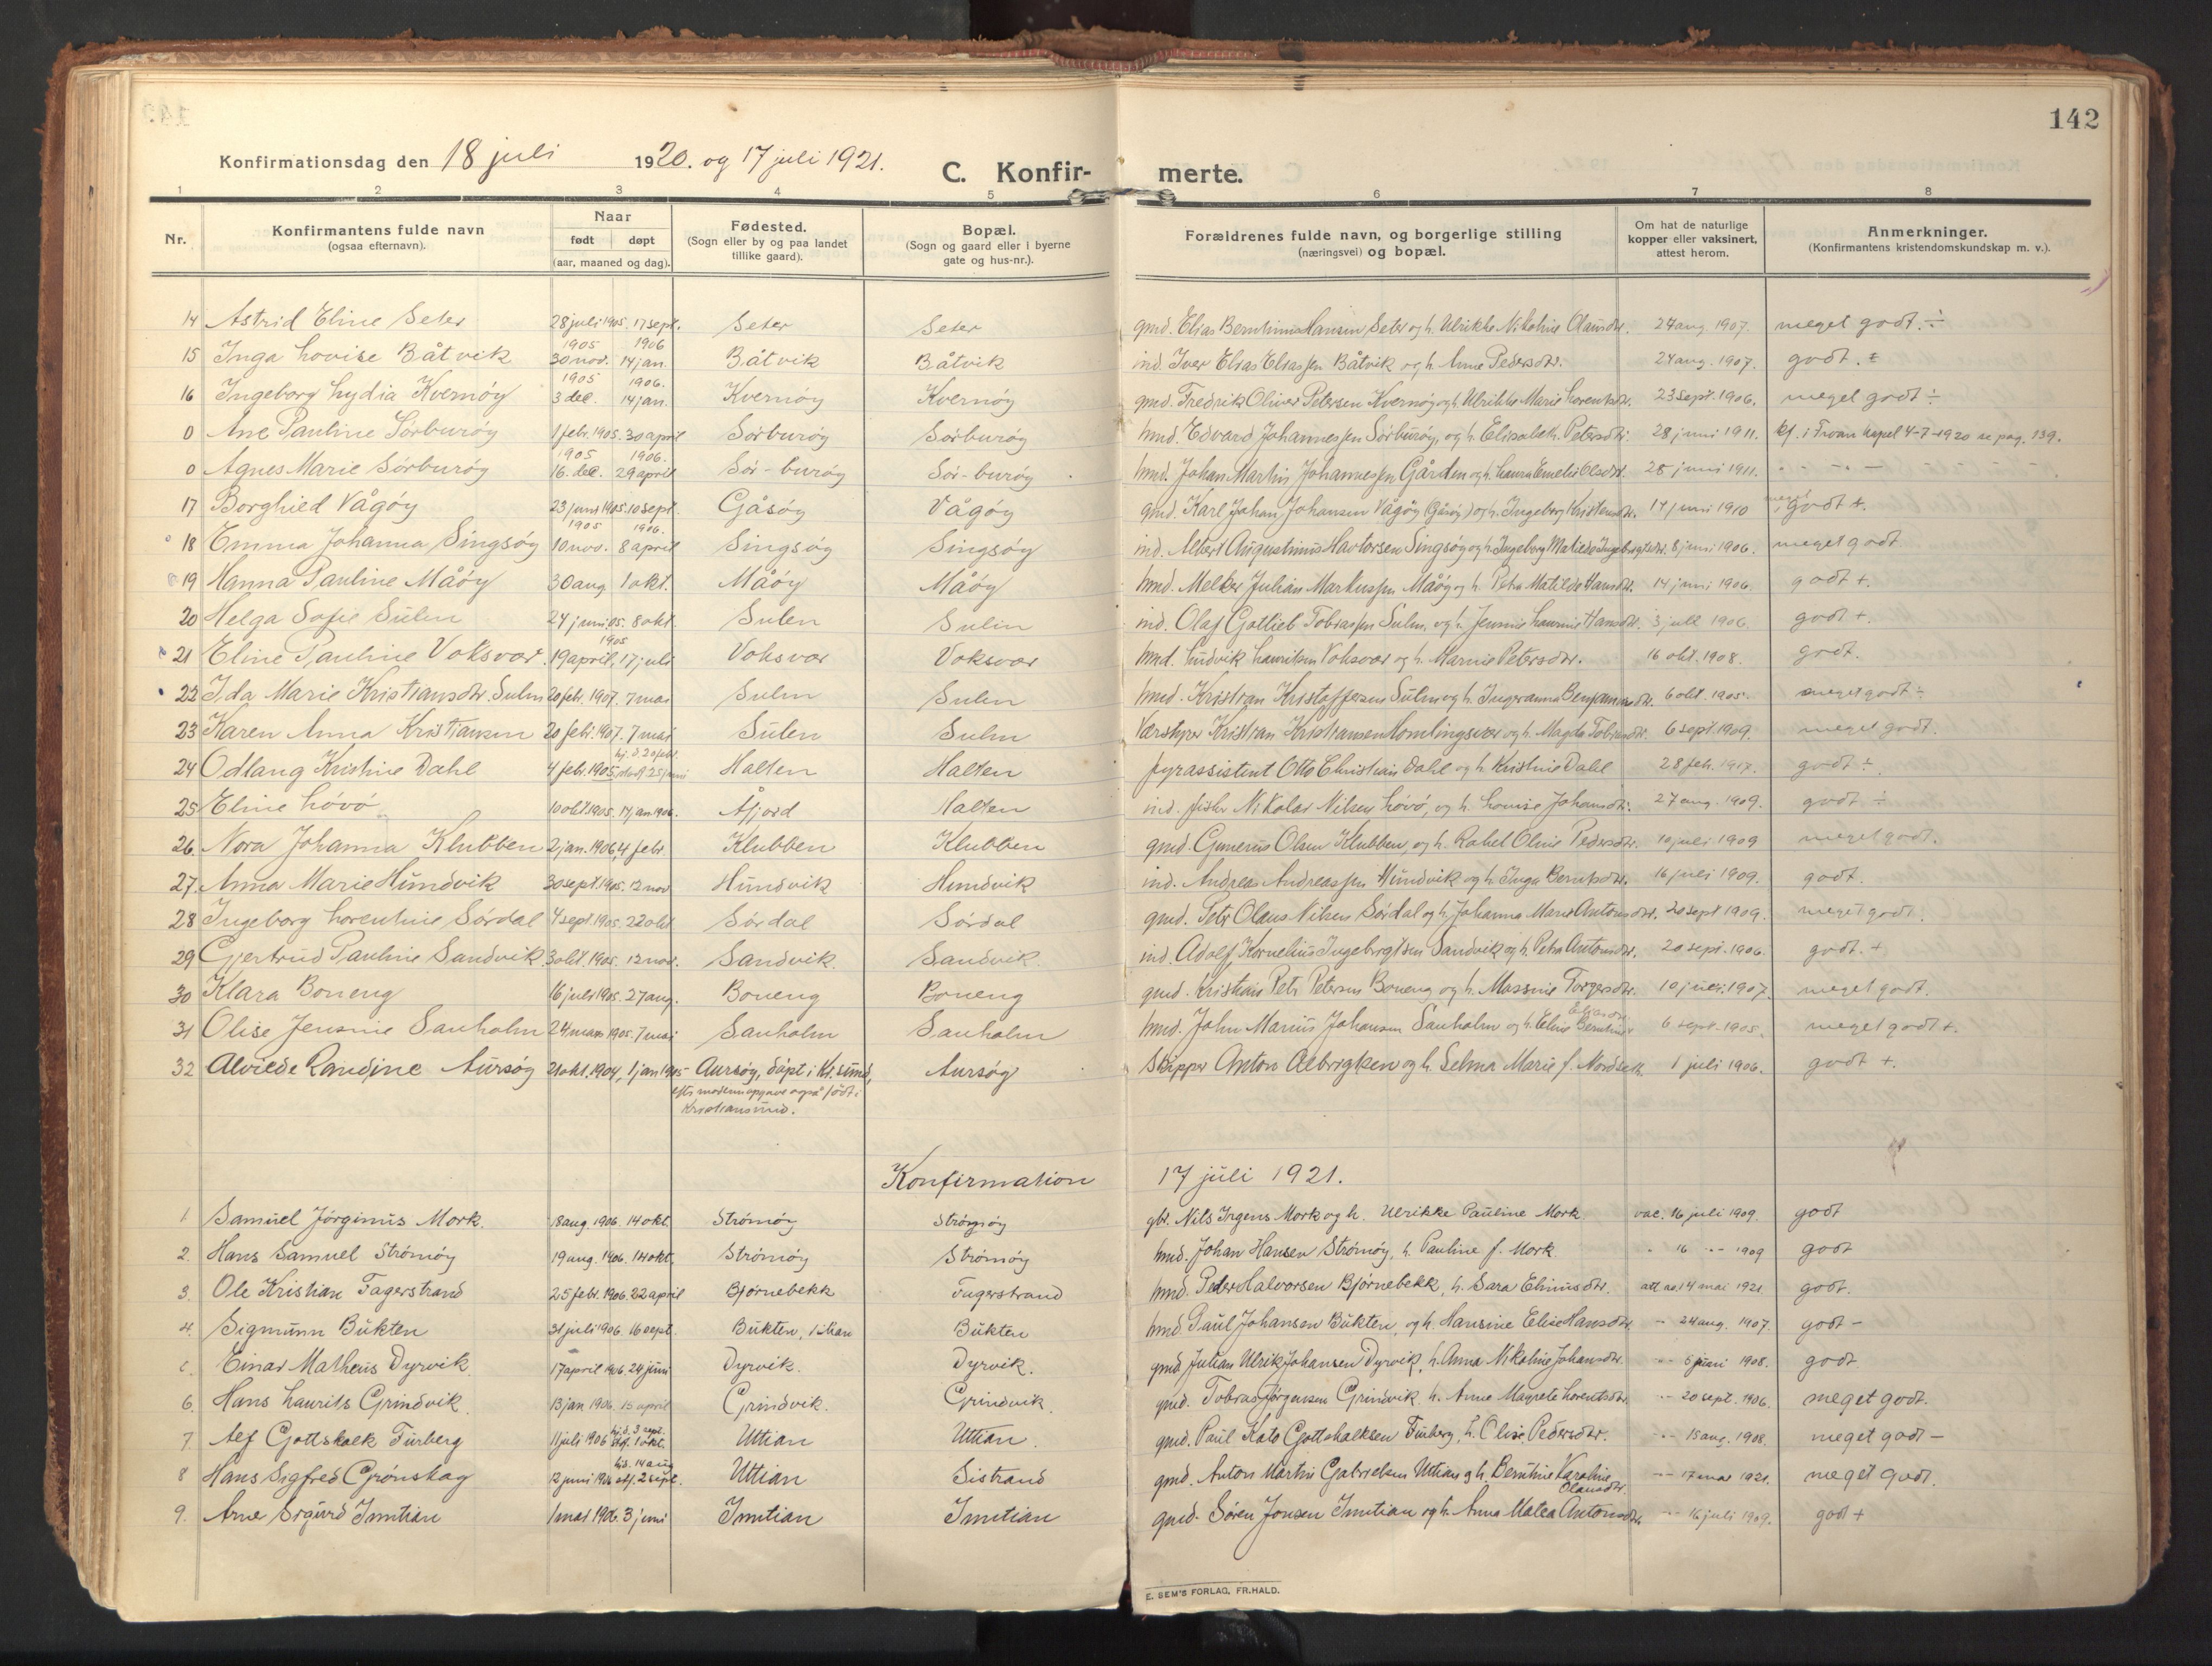 142
Konfirmationsdag den 18 juli 1920. og 17 juli 1921.
C. Konfir- merte.
1 2 3 4 5 6 7 8
Nr.
Konfirmantens fulde navn
(ogsaa efternavn).
Naar
født døpt
(aar, maaned og dag).
Fødested.
(Sogn eller by og paa landet
tillike gaard).
Bopæl.
(Sogn og gaard eller i byerne
gate og hus-nr.).
Forældrenes fulde navn, og borgerlige stilling
(næringsvei) og bopæl.
Om hat de naturlige
kopper eller vaksinert,
attest herom.
Anmerkninger.
(Konfirmantens kristendomskundskap m. v.).
14 Astrid Eline Seter 28 juli 1905. 17 sept. Seter Seter gmd. Elias Berntinus Hansen Seter og h. Ulrikke Nikoline Olausdtr. 24 aug. 1907. meget godt. ÷
1905 1906
15 Inga Lovise Båtvik 30 nov. 14 jan. Båtvik Båtvik ind. Iver Elias Eliassen Båtvik og h. Anne Pedersdtr. 24 aug. 1907. godt. ±
1905 1906.
16 Ingeborg Lydia Kvernöy 3 dec. 14 jan. Kvernöy Kvernöy gmd. Fredrik Oliver Petersen Kvernöy og h. Ulrikke Marie Lorentsdtr. 23 sept. 1906. meget godt ÷
0 Ane Pauline Sörburöy 1 febr. 1905. 30 april Sörburöy Sörburöy hmd. Edvard Johannessen Sörburöy, og h. Elisabeth Petersdtr. 28 juni 1911. kf. i Froan kapel 4-7-1920 se pag. 139.
1905 1906.
0 Agnes Marie Sörburöy 16. dec. 29 april Sör-buröy Sör-buröy hmd. Johan Martin Johannessen Gården og h. Laura Emelie Olsdtr. 28 juni 1911. - - - -
17 Borghild Vågöy 23 juni 1905. 10 sept. Gåsöy Vågöy gmd. Karl Johan Johansen Vågöy (Gåsöy) og h. Ingeborg Kristensdtr. 14 juni 1910 meget godt +.
1905 1906.
18 Emma Johanna Singsöy 10 nov. 8 april Singsöy Singsöy ind. Albert Augustinus Havtorsen Singsöy og h. Ingeborg Matilde Ingebrigtsdtr. 8 juni 1906. meget godt
19 Hanna Pauline Måöy 30 aug. 1 okt. Måöy Måöy hmd. Melker Julian Markussen Måöy og h. Petra Matilde Hansdtr. 14 juni 1906. godt +.
20 Helga Sofie Sulen 24 juni 05. 8 okt. Sulen Sulen ind. Olaf Gotlieb Tobiassen Sulen, og h. Jennie Hansdtr. 3 juli 1906 godt +.
1905
21 Eline Pauline Voksvær. 19 april, 17 juli Voksvær Voksvær hmd. Ludvik Lauritsen Voksvær og h. Marnie Petersdtr. 16 okt. 1908. godt.
22 Ida Marie Kristiansdtr. Sulen 20 febr. 1907. 7 mai Sulen Sulen hmd. Kristian Kristoffersen Sulen og h. Ingeranna Benjaminsdtr. 6 okt. 1905. meget godt ÷
23 Karen Anna Kristiansen 20 febr. 1907. 7 mai Sulen Sulen Kristian Kristiansen og h. Magda Tobiasdtr. 6 sept. 1909. meget godt.
hj. d. 20 febr.
24 Odlaug Kristine Dahl 4 febr. 1905, 25 juni Halten Halten fyrassistent Otto Christian Dahl og h. Kristine Dahl 28 feb. 1917. godt ÷.
25 Eline Lövö 10 okt 1905. 14 jan 1906. Åfjord Halten ind. fisker Nikolai Nilsen Lövö, og h. Lovise Johansdtr. 27 aug. 1909. godt ÷
26. Nora Johanna Klubben 2 jan. 1906, 4 febr. Klubben Klubben gmd. Gunerius Olsen Klubben, og h. Rakel Oline Pedersdtr. 10 juli 1909 meget godt.
27. Anna Marie Hundvik 30 sept. 1905. 12 nov Hundvik Hundvik ind. Andreas Andreassen Hundvik og h. Inga Berntsdtr. 16 juli 1909. godt.
28 Ingeborg Lorentine Sördal 4 sept. 1905. 22 okt Sördal Sördal gmd. Petr Olaus Nilsen Sördal og h. Johanna Marie Antonsdtr. 20 sept 1909. meget godt.
29 Gjertrud Pauline Sandvik 3 okt. 1905. 12 nov. Sandvik. Sandvik. ind. Adolf Kornelius Ingebrigtsen Sandvik og h. Petra Antonsdtr. 20 sept. 1906. godt. +
30 Klara Boneng 16 juli 1905. 27 aug. Boneng Boneng gmd. Kristian Petr Petersen Boneng og h. Massine Torgersdtr. 10 juli 1907. meget godt.
31 Olise Jensine Sanholm 24 mars 1905. 7 mai Sanholm Sanholm hmd. John Marius Johansen Sanholm og h. Eline Berntine 6 sept. 1905. meget godt +.
32 Alvilde Randine Aursöy 21 okt. 1904, 1 jan 1905 Aursöy, döpt i Kr.sund, Aursöy Skipper Anton Albrigtsen og h. Selma Marie f. Nordseth. 1 juli 1906. godt +.
efter moderens opgave også födt i
Kristiansund.
Konfirmation 17 juli 1921.
1 Samuel Jörginus Mork. 18 aug. 1906. 14 okt. Strömöy Strömöy gbr. Nils Irgens Mork og h. Ulrikke Pauline Mork. vac. 16 juli 1909. godt
2. Hans Samuel Strömöy 19 aug. 1906. 14 okt. Strömöy Strömöy hmd. Johan Hansen Strömöy, h. Pauline f. Mork. " 16 -"- 1909 godt
3. Ole Kristian Fagerstrand 25 febr. 1906. 22 april Bjørnebekk Fagerstrand hmd. Peder Halvorsen Bjørnebekk, h. Sara Elinusdtr. att. av. 14 mai 1921 godt.
4. Sigmunn Bukten 31 juli 1906. 16 sept. Bukten, Bukten hmd. Paul Johansen Bukten, og h. Hansine Elise Hansdtr. - 24 aug. 1907. godt -
Einar Matheus Dyrvik 17 april 1906 24 juni Dyrvik. Dyrvik. gmd Julian Ulrik Johansen Dyrvik, h. Anna Nikoline Johansdtr. -"- 5 juni 1908. godt.
6. Hans Laurits Grindvik 13 jan 1906. 15 april Grindvik. Grindvik. gmd. Tobias Jørgensen Grindvik h. Anne Magrete Lorentsdtr. -"- 20 sept. 1906. meget godt.
hj. d. 3 sept.
7 Alf Gottskalk Furberg 11 juli 1906 stf. 1 okt. Uttian Uttian. gmd. Paul Kato Gottskalksen Furberg, h. Olise Pedersdtr. -"- 15 aug. 1908. meget godt -
hjd. 14 aug
8 Hans Sigfred Grönskag 12 juni 1906 stf. 2 sept. Uttian Sistrand gmd. Anton Martin Gabrielsen Uttian og h. Berntine Karoline Olausdtr. -"- 17 mai 1921. meget godt.
9. Arne Sigurd Inntian 1 mai 1906. 3 juni Inntian Inntian gmd. Sören Jonsen Inntian og h. Anna Malea Antonsdtr. -"- 16 juli 1909. godt +
E. SEM'S FORLAG, FR.HALD.